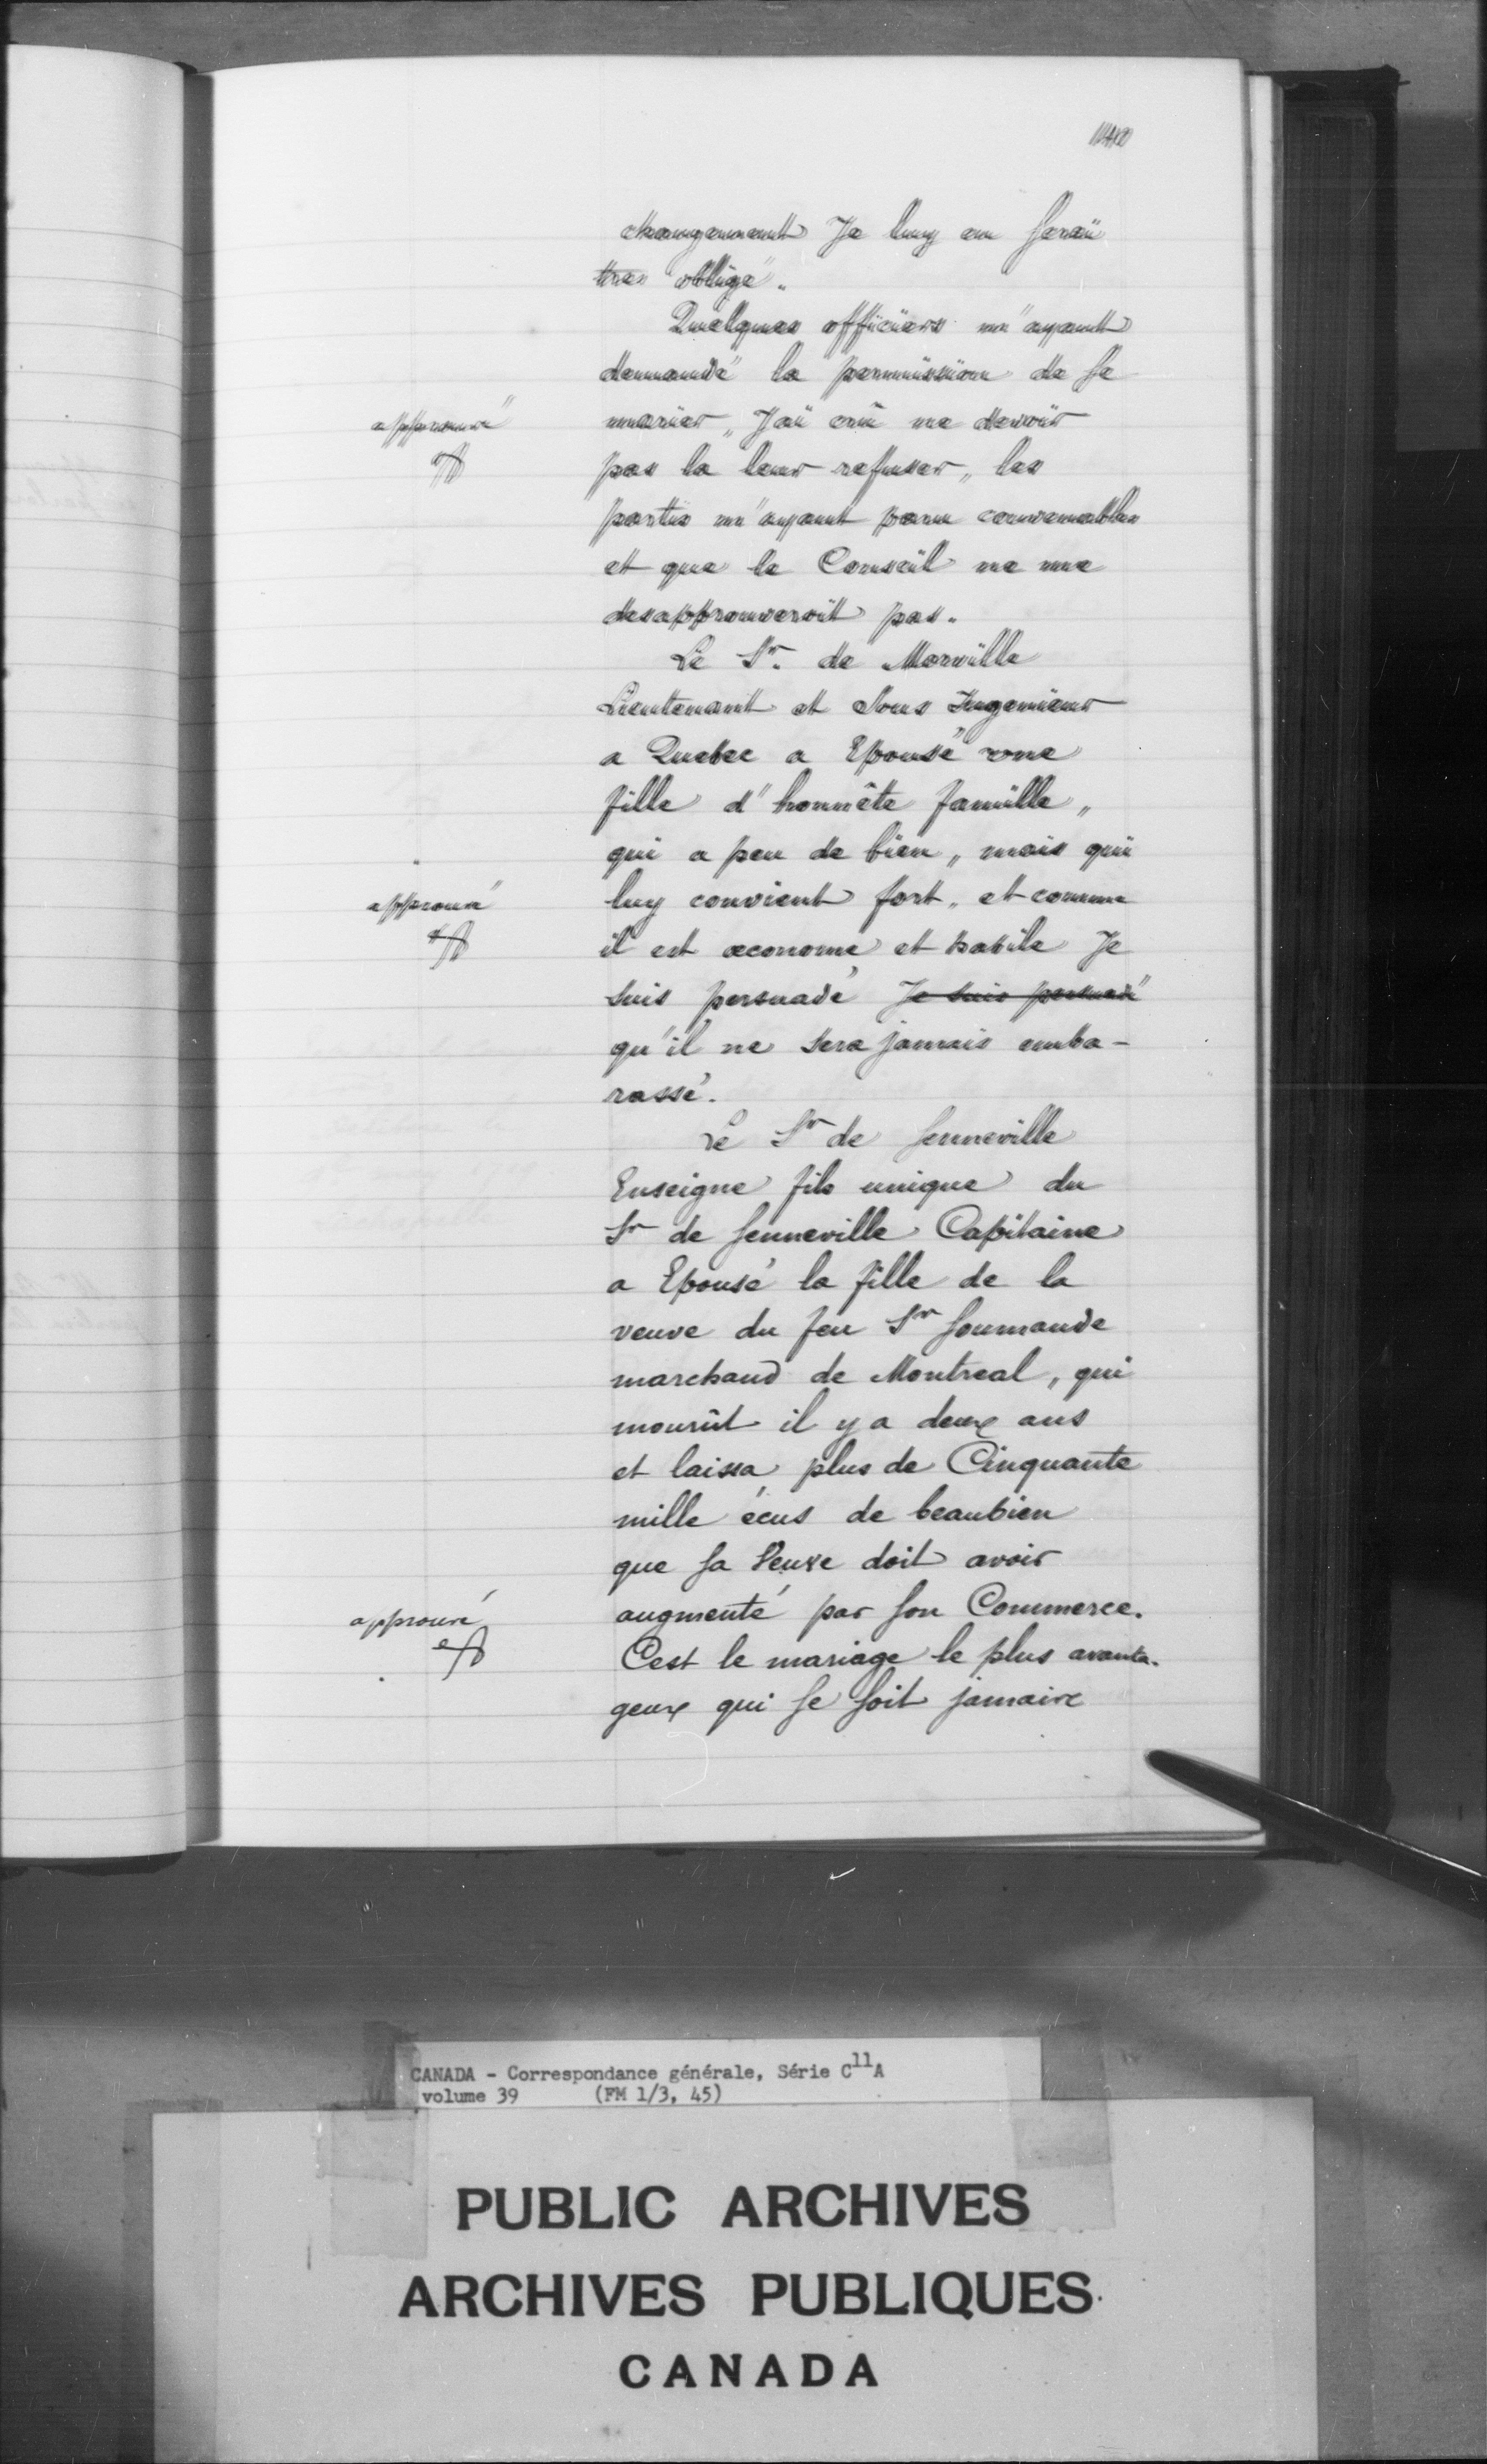 changement Je luy en serai
tres obligé.
Quelques officiers m'ayant
demandé la permission de se
approuvé
marier, J'ai crû ne devoir
pas la leur refuser, les
partis m'ayant paru convenables
et que le Conseil ne me
desapprouveroit pas.
Le Sr. de Morville
Lieutenant et Sous Ingenieur
a Quebec a Epousé une
fille d'honnête famille,
qui a peu de bien, mais qui
approuvé
luy convient fort, et comme
il est œconome et habile Je
suis persuadé Je suis persuadé
qu'il ne sera jamais emba-
rassé.
Le Sr de Senneville
Enseigne fils unique du
Sr de Senneville Capitaine
a Epousé la fille de la
veuve du feu Sr Soumande
marchand de Montreal, qui
mourût il y a deux ans
et laissa plus de Cinquante
mille écus de beaubien
que sa Veuve doit avoir
approuvé
augmenté par son Commerce.
C'est le mariage le plus avanta-
geux qui se soit jamais
CANADA - Correspondance générale, Série C11A
volume 39 (FM 1/3, 45)
PUBLIC ARCHIVES
ARCHIVES PUBLIQUES
CANADA